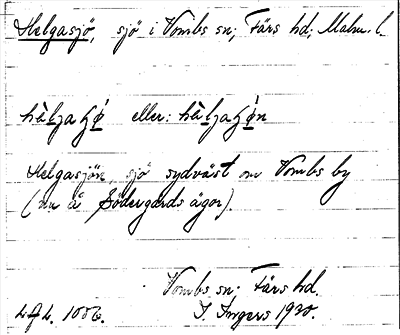 Helgasjö, sjö i Vombs sn; Färs hd; Malm. l.
hæ̀ljaʃǿ eller: hæ̀ljaʃǿn
Helgasjön, sjö sydväst om Vombs by
(nu å Södergårds ägor).
Vombs sn; Färs hd.
I. Ingers 1930.